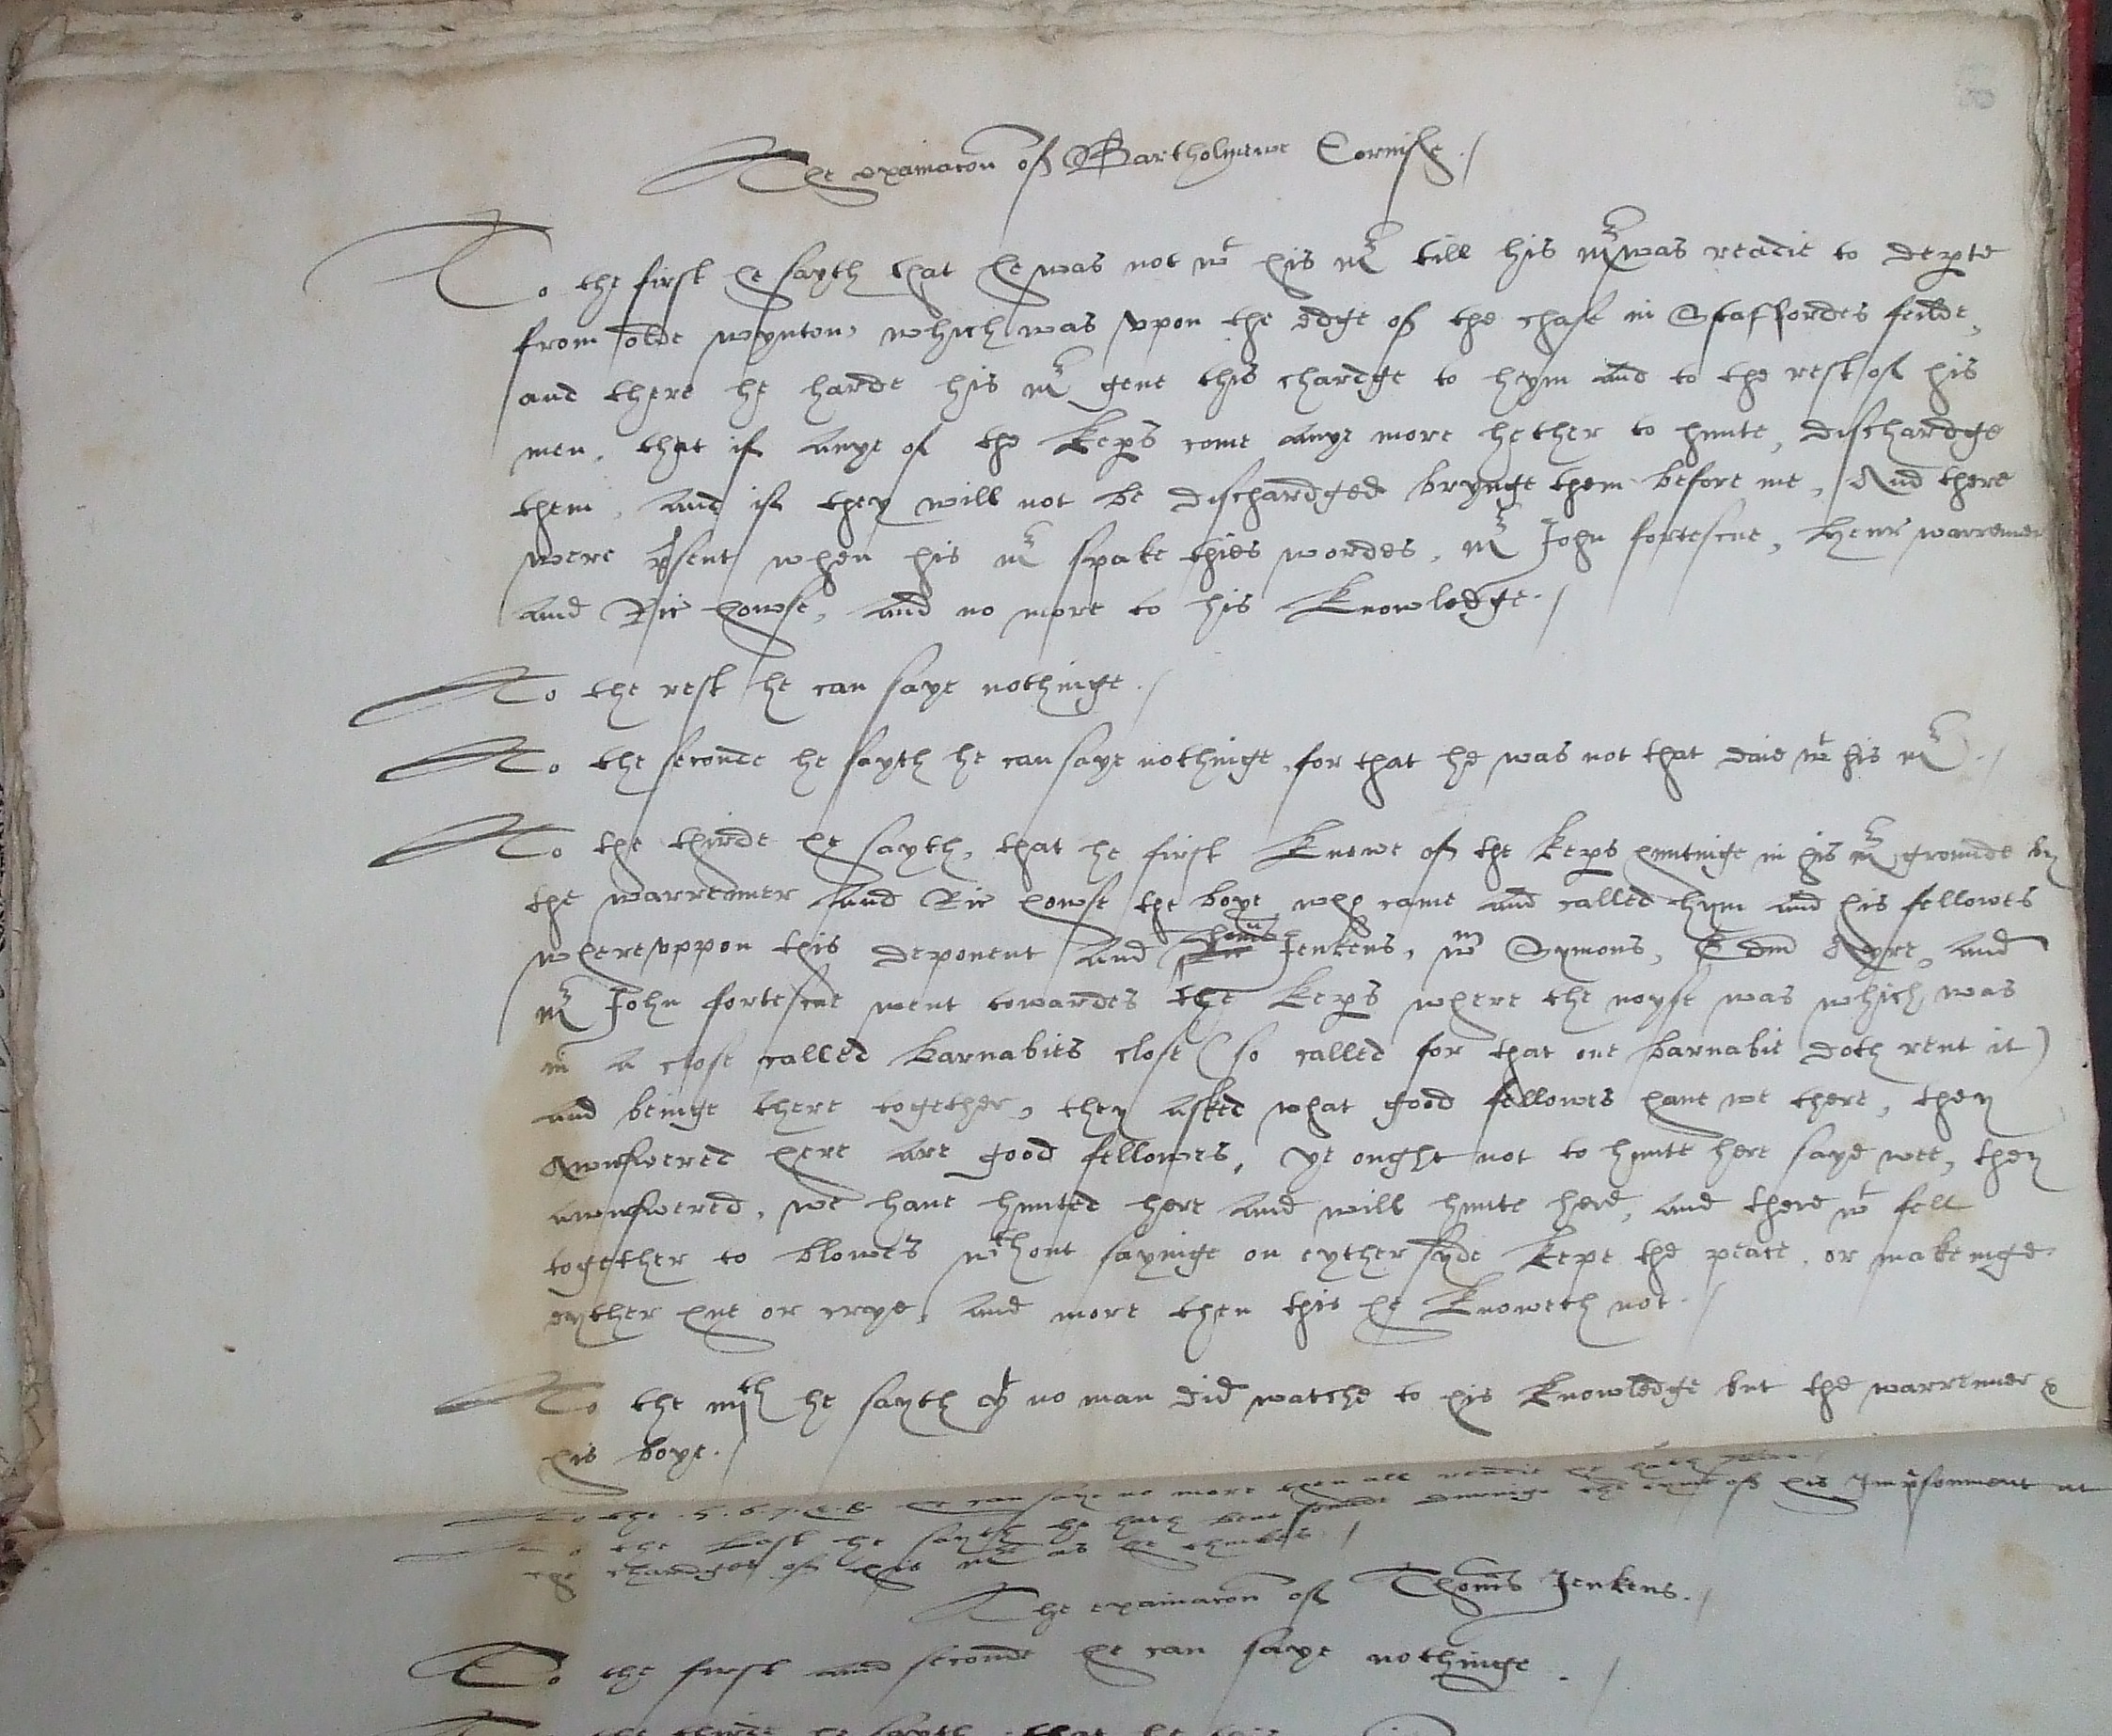 The exaiacon of Bartholmewe Cornishe./
To the first he sayth that he was not wt his Mr till his Mr was readie to depte
from olde wynton, which was vpon the edge of the chase in Staffordes feilde,
and there he harde his Mr geue this chardge to hym and to the rest of his
men, that if anye of the keps come anye more hether to hunte, dischardge
them, and if they will not be dischardged brynge them before me, And there
were psent when his Mr spake thies wordes, Mr John fortescue, Henr warrener
and Ric howse, and no more to his knowledge./
To the rest he can saye nothinge./
To the seconde he sayth he can saye nothinge, for that he was not that daie wt his Mr./
To the thirde he sayth, that he first knewe of the keps huntinge in his Mr grounde by
the warrenner and Ric howse the boye who came and called hym and his fellowes
wherevppon this deponent and Thoms Jenkens, wm Symons, Edm Ayre, and
Mr John fortescue went towardes the keps where the noyse was which was
in a close called barnabies close (so called for that one barnabie doth rent it)
and beinge there together, they asked what good fellowes haue we there, they
Awnswered here are good fellowes, ye ought not to hunte here sayd wee, they
awnswered, we haue hunted here and will hunte here, and there we fell
together to blowes wthout sayinge on eyther syde kepe the peace, or makeinge
eyther hue or crye, and more then this he knoweth not./
To the iiijth he sayth yt no man did watche to his knowledge but the warrenner &
his boye./
To the .5.6.7.&.8. he can saye no more then all readie he hath
To the Last he sayth he hath bene founde duringe the tyme of his Impsonment at
the chardges of his Mr as he thinketh./
The exaiacon of Thoms Jenkens./
To the first and seconde he can saye nothinge./
the thirde he sayth that he